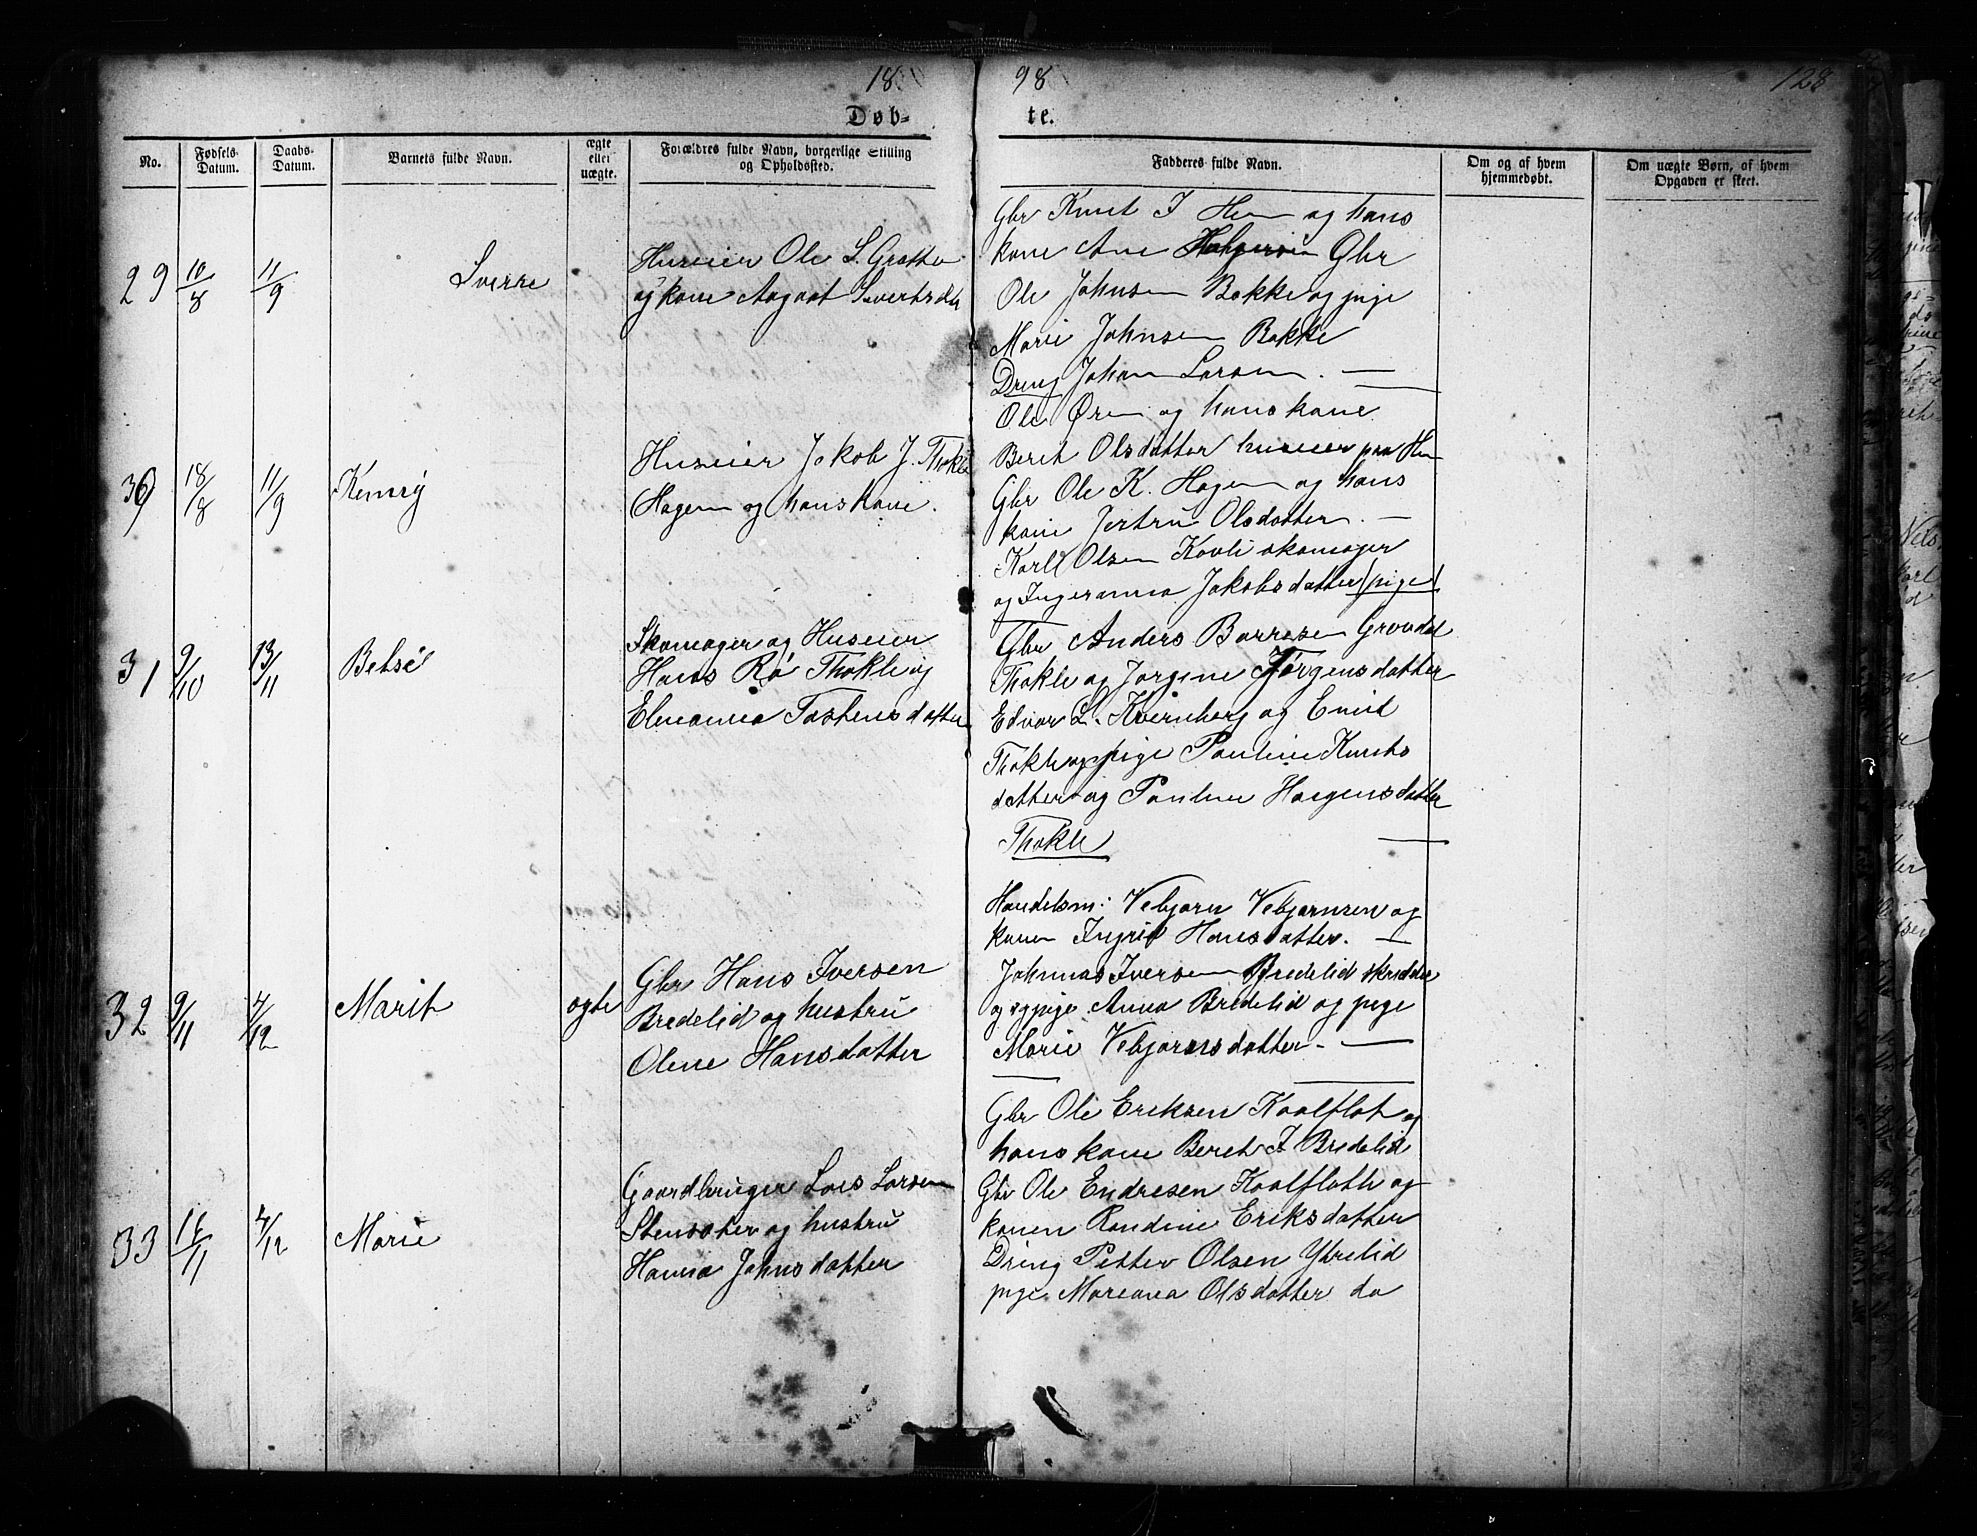 18 98 128
Døb- te.
No.
Fødsels-
Datum.
Daabs-
Datum.
Barnets fulde Navn.
ægte
eller
uægte.
Forældres fulde Navn, borgerlige Stilling
og Opholdssted.
Faddernes fulde Navn.
Om og af hvem
hjemmedøbt.
Om uægte Børn, af hvem
Opgaven er skeet.
29 10/8 11/9 Sverre
Huseier Ole S. Grotte
og kone Aagaat Sivertsdtr
Gbr Knut I Hem og hans
kone Ane Gbr
Ole Johnsen Bakke og pige
Marie Johnsen Bakke
Dreng Johan Larsen. —
30 18/8 11/9 Henry
Huseier Jakob J. Thokle
Hagen og hans kone.
Ole Øren og hans kone
Berit Olsdatter huseier paa Hem
Gbr Ole K. Hagen og hans
kone Jertru Olsdatter. —
Karl Olsen Kovli skomager
og Ingeranna Jakobsdatter (pige)
31 9/10 13/11 Betsé
Skomager og Huseier
Hans Rø Thokle og
Elenanna Tostensdatter
Gbr Anders Barresen Grøndal
Thokle og Jorgine Jørgensdatter
Edvar L. Kvernberg og Enid
Thokle og pige Pauline Knuts
datter og Pauline Haagensdatter
Thokle —
32 9/11 4/12 Marit ægte
Gbr Hans Iversen
Bredelid og hustru
Olene Hansdatter
Handelsm: Vebjørn Vebjørnsen og
konen Ingrid Hansdatter. —
Johannas Iversen Bredelid skredder
og pige Anna Bredelid og pige
Marie Vebjørnsdatter. —
33 14/11 4/12 Marie
Gaardbruger Lars Larsen
Stensoter og hustru
Hanna Johnsdatter
Gbr Ole Eriksen Kaalflot og
hans kone Beret I Bredelid
Gbr Ole Endresen Kaalfloth og
konen Randine Eriksdatter
Dreng Petter Olsen Ytrelid
pige Mareana Olsdatter do